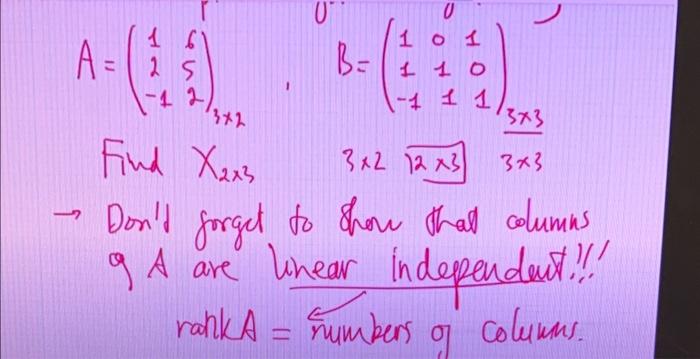 A = ( 1 6 2 5 -1 2 ) 3×2 , B = ( 1 0 1 1 1 0 -1 1 1 ) 3×3
Find X 2×3 3×2 2×3 3×3
→ Don't forget to show that columns
of A are linear independent!!!
rank A = numbers of columns.